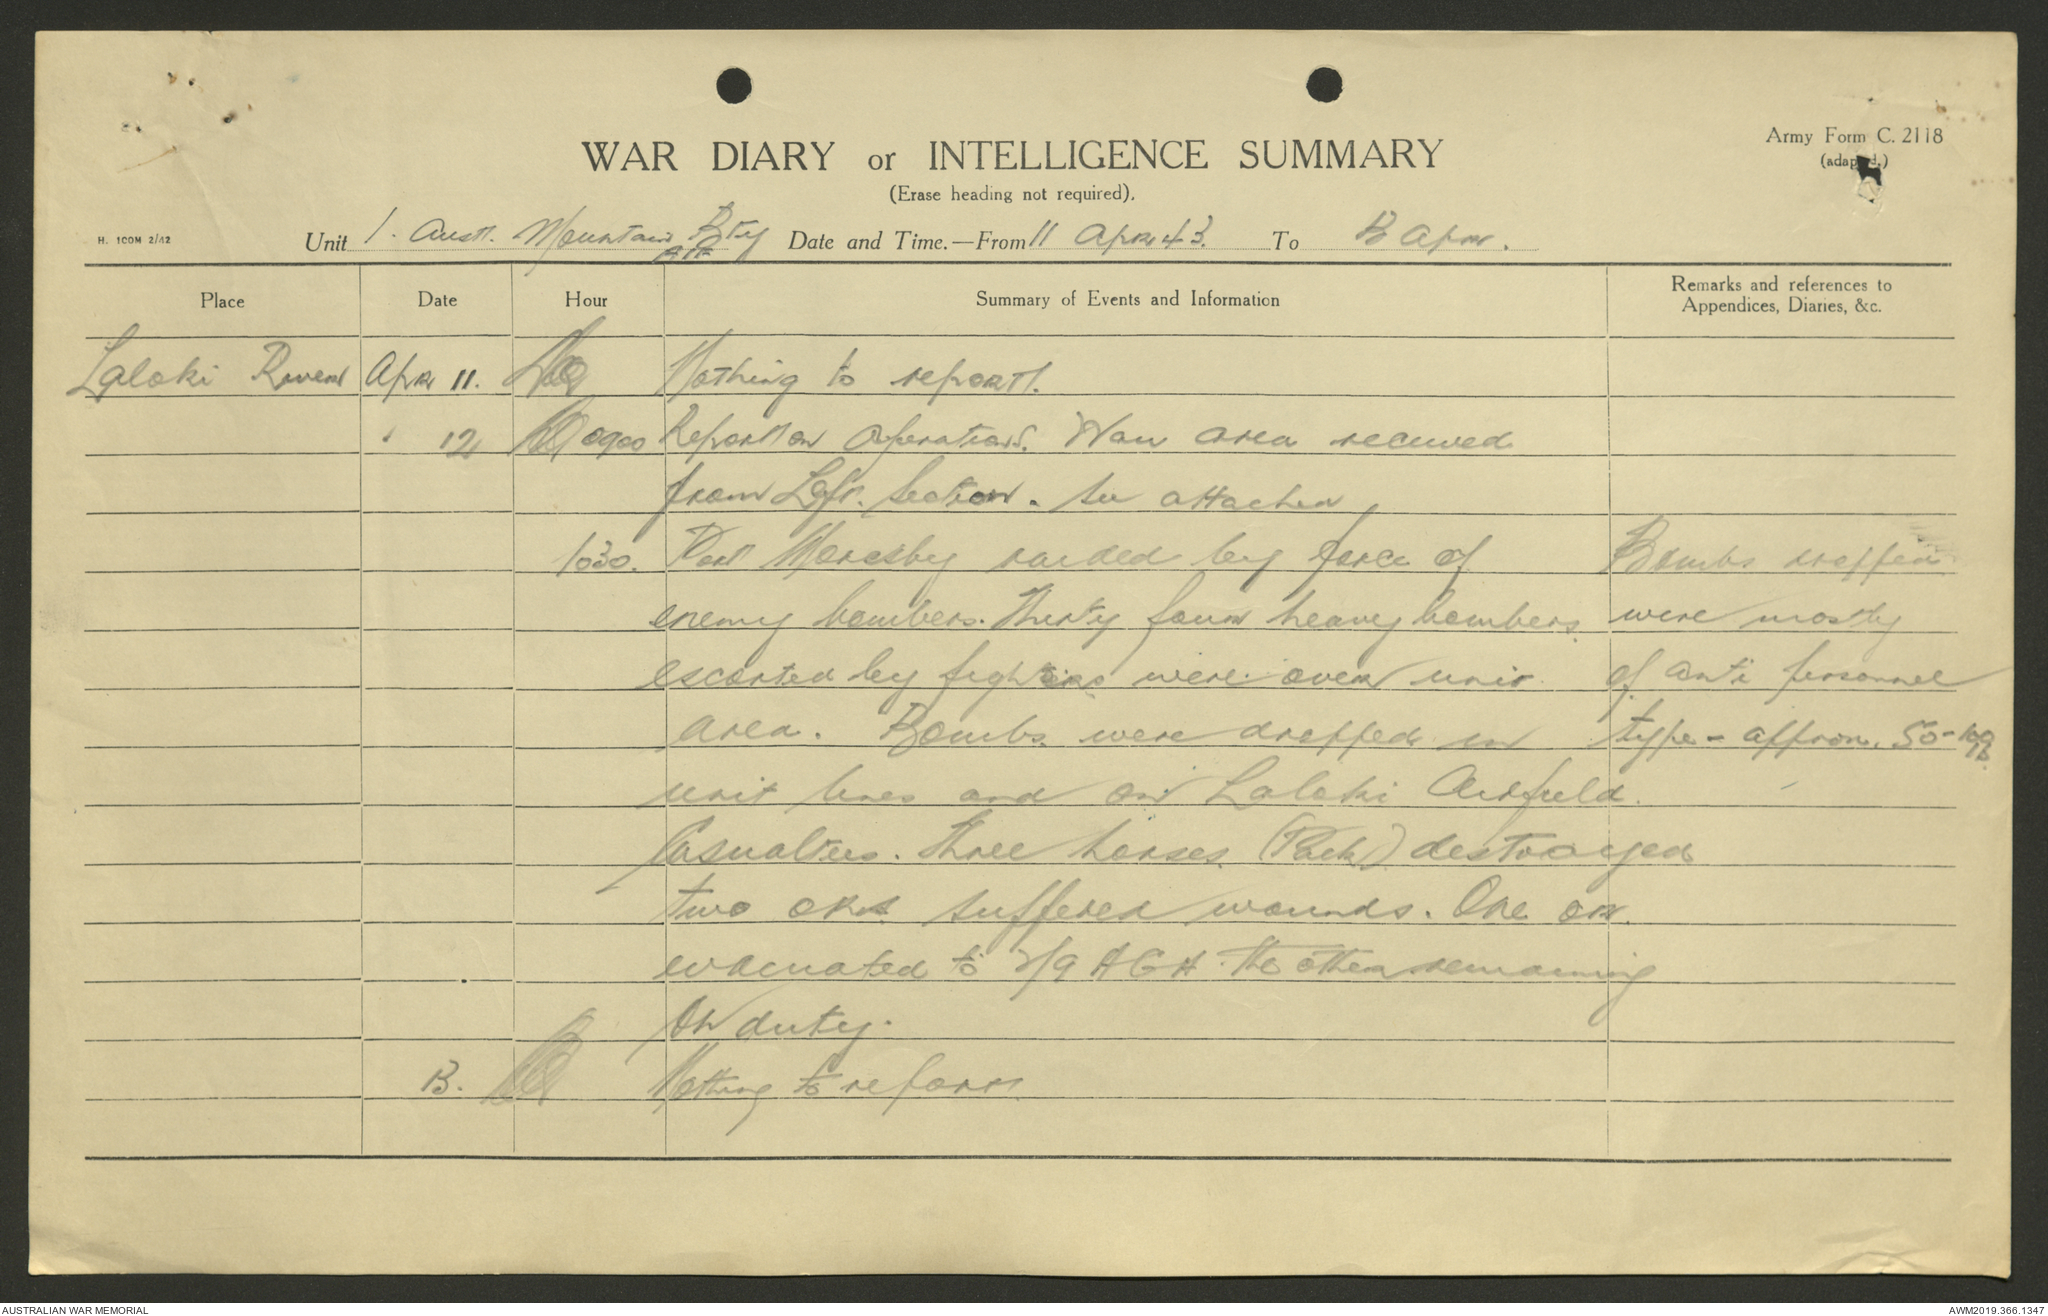 Army Form C. 2118
WAR DIARY or INTELLIGENCE SUMMARY
(adapted.)
(Erase heading not required).
H. 1COM 2/42
Unit 1. Aust. Mountain Bty Date and Time.—From 11 Apr 43. To 13 Apr.
AIF
Place Date Hour Summary of Events and Information Remarks and references to
Appendices, Diaries, &c.
Laloki River Apr 11. Nothing to report.
" 12 0900 Report on Operations. Wau area received
from Left. Section. See attached
1030. Port Moresby raided by force of Bombs dropped
enemy bombers. Thirty four heavy bombers were mostly
escorted by fighters were over unit of anti personnel
area. Bombs were dropped in type - approx. 50-100lb.
unit lines and on Laloki Airfield.
Casualties. Three horses (Pack) destroyed
two ORs suffered wounds. One OR.
evacuated to 2/9 AGH. the other remaining
on duty.
13. Nothing to report
AUSTRALIAN WAR MEMORIAL AWM2019.366.1347